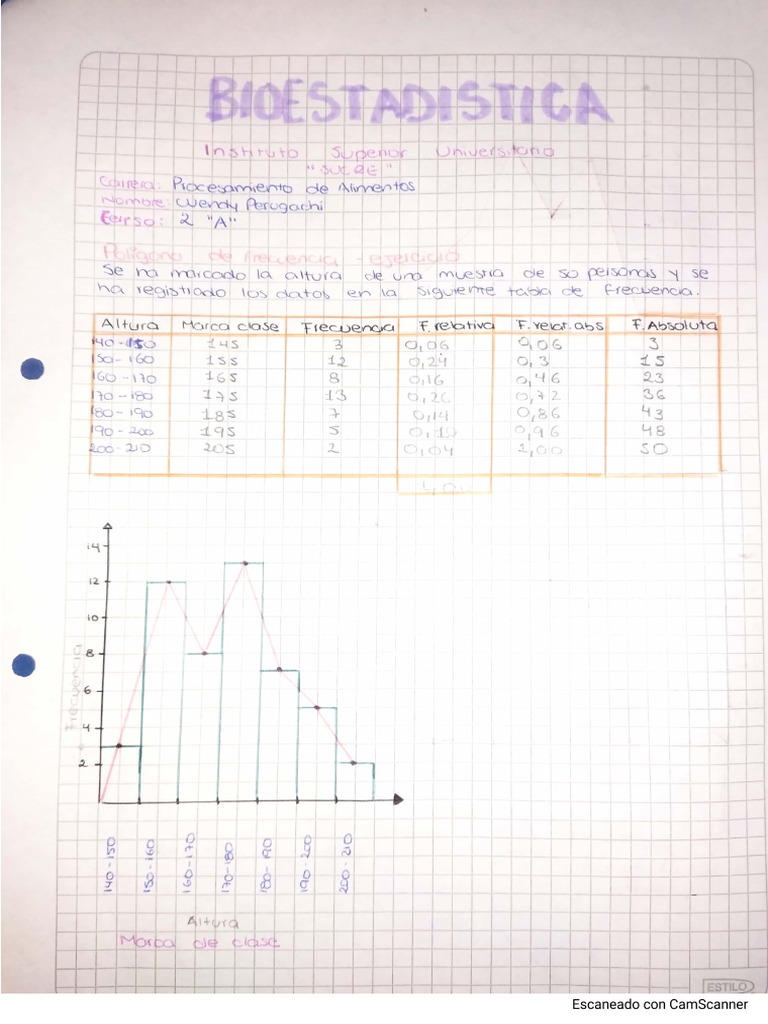 BIOESTADISTICA
Instituto Superior Universitario
"SUCRE"
Carrera: Procesamiento de Alimentos
Nombre: Wendy Perugachi
Curso: 2 "A"
Polígono de frecuencia - ejercicio
Se ha marcado la altura de una muestra de 50 personas y se
ha registrado los datos en la siguiente tabla de frecuencia.
Altura Marca clase Frecuencia F. relativa F. relat. abs F. Absoluta
140-150 145 3 0,06 0,06 3
150-160 155 12 0,24 0,3 15
160-170 165 8 0,16 0,46 23
170-180 175 13 0,26 0,72 36
180-190 185 7 0,14 0,86 43
190-200 195 5 0,10 0,96 48
200-210 205 2 0,04 1,00 50
14
12
10
8
6
4
2
Frecuencia
140-150 150-160 160-170 170-180 180-190 190-200 200-210
Altura
Marca de clase
ESTILO
Escaneado con CamScanner